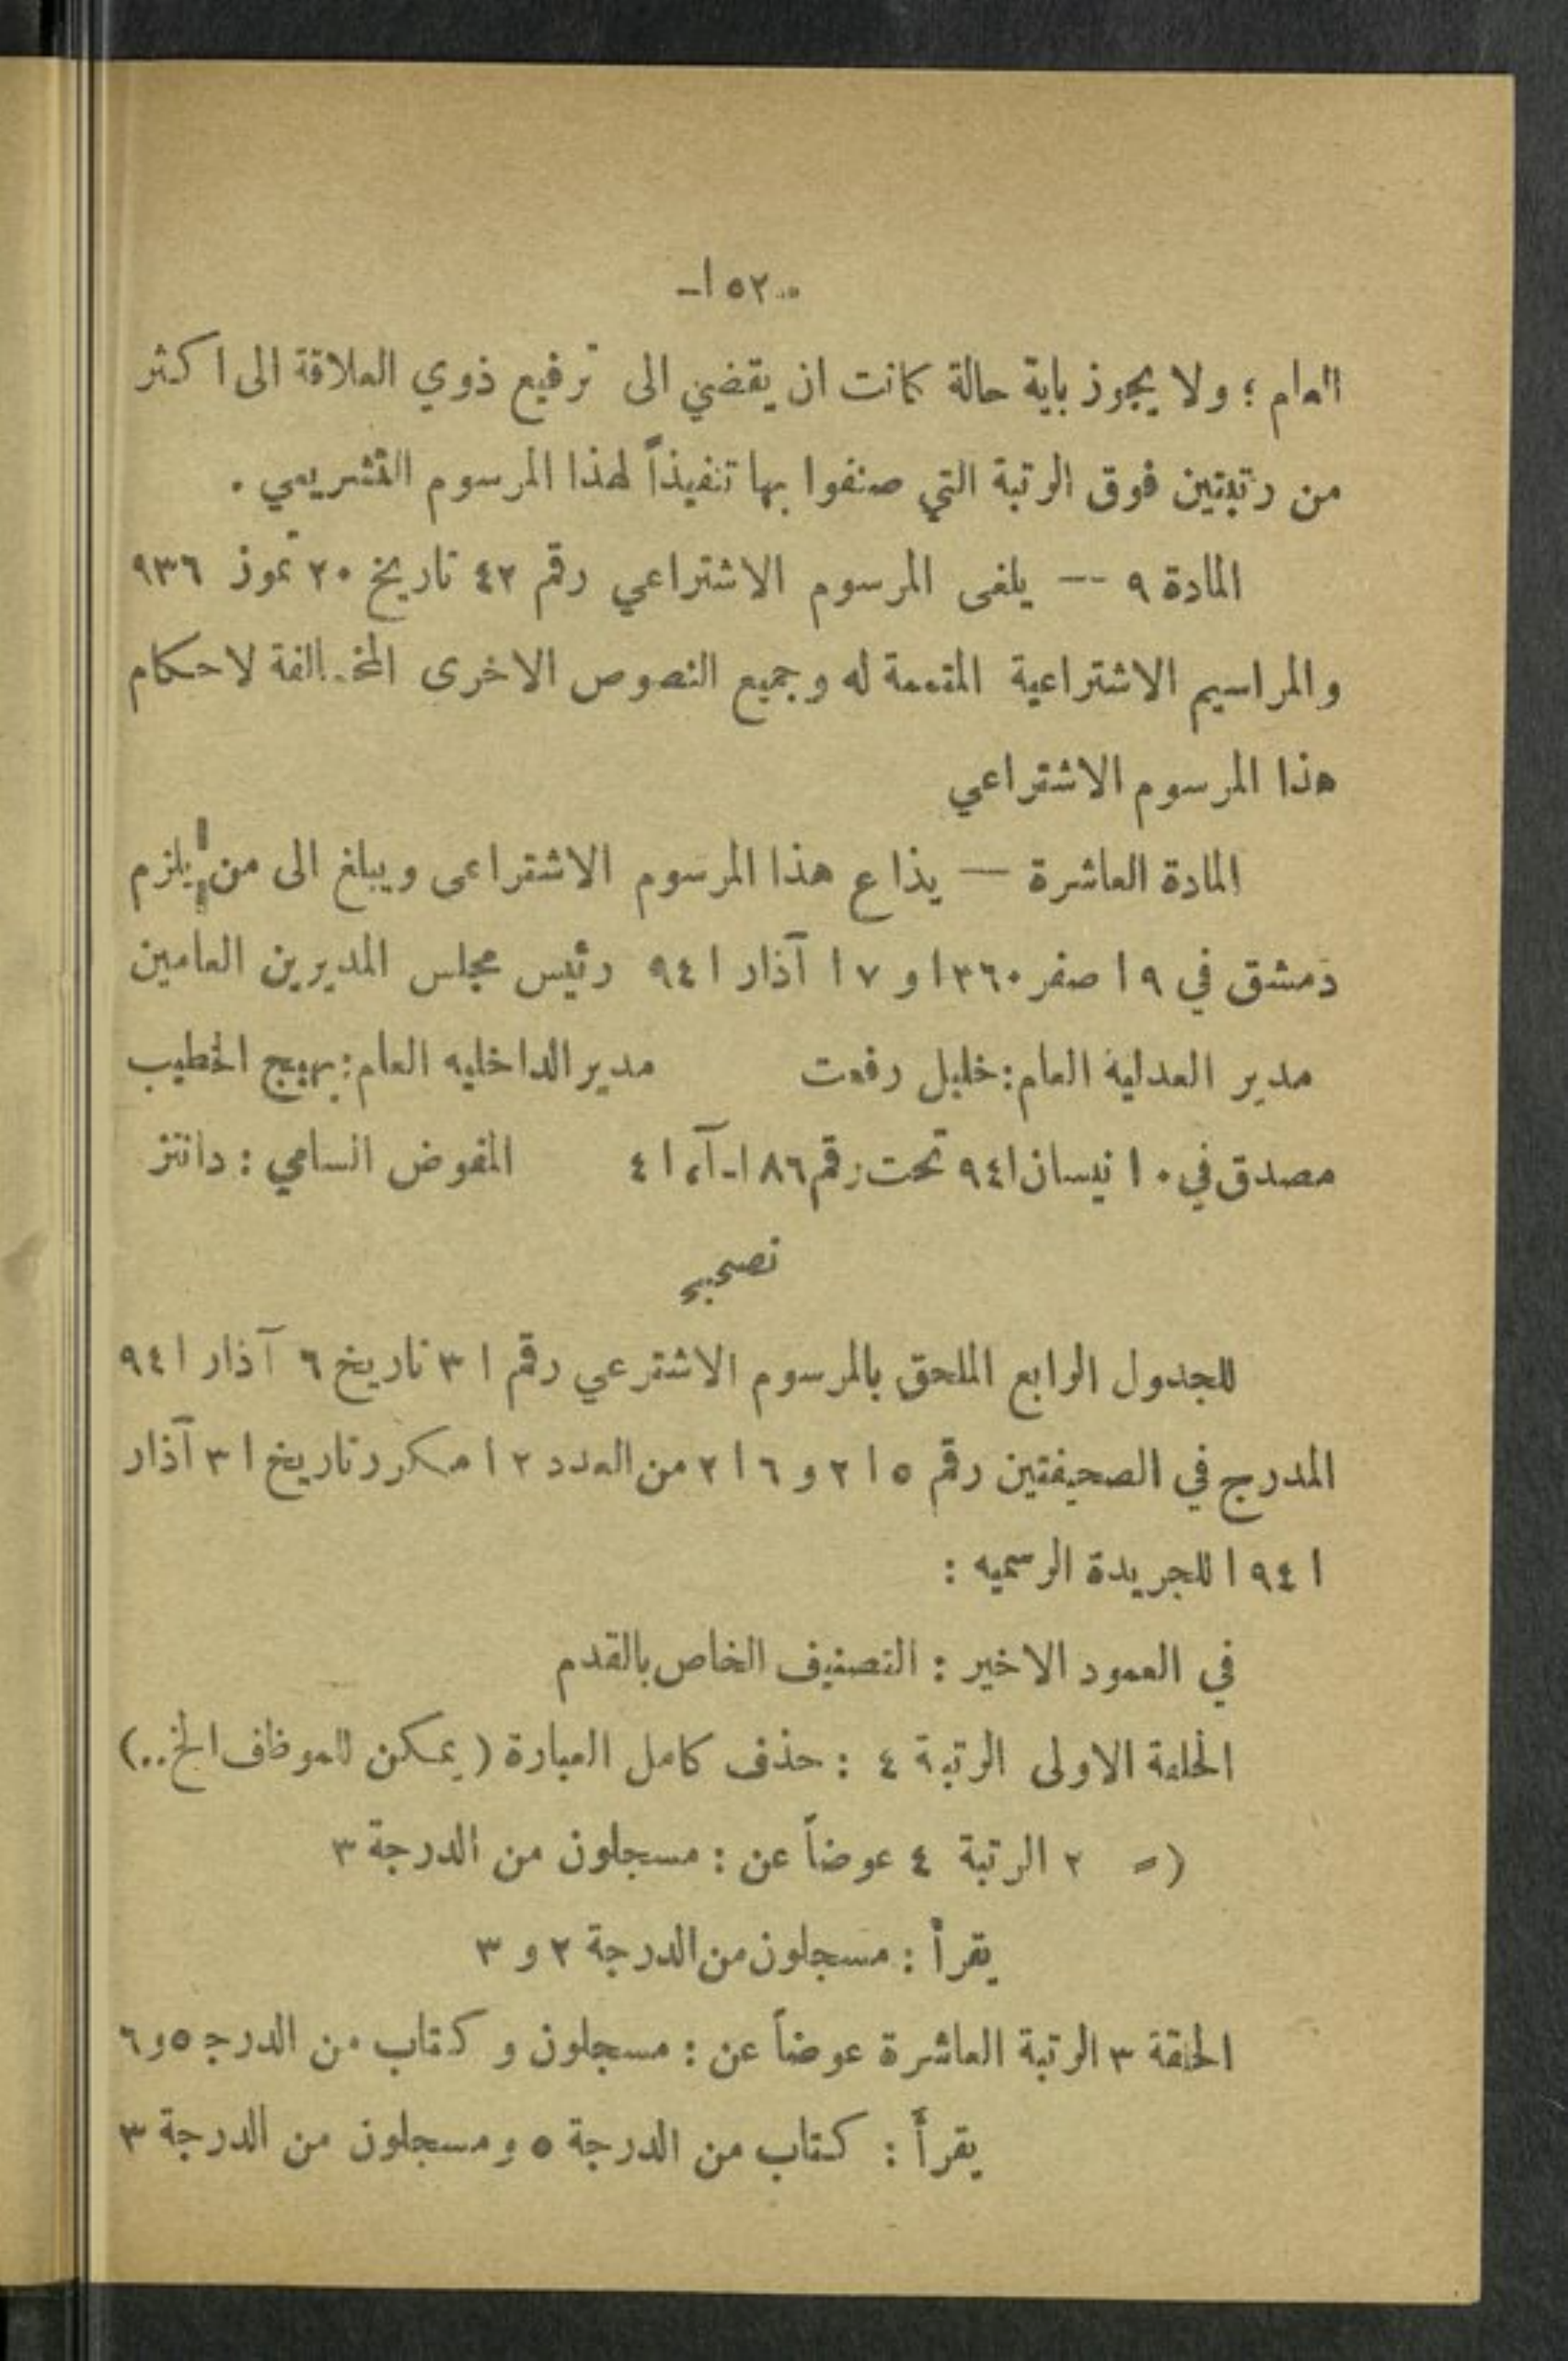 -١٥٢-
العام ؛ ولا يجوز باية حالة كانت ان يقضي الى ترفيع ذوي العلاقة الى اكثر
من رتبتين فوق الرتبة التي صنفوا بها تنفيذاً لهذا المرسوم التشريعي .
المادة ٩ -- يلغى المرسوم الاشتراعي رقم ٤٢ تاريخ ٢٠ تموز ٩٣٦
والمراسيم الاشتراعية المتممة له وجميع النصوص الاخرى المخالفة لاحكام
هذا المرسوم الاشتراعي
المادة العاشرة — يذاع هذا المرسوم الاشتراعى ويبلغ الى من يلزم
دمشق في ١٩ صفر ١٣٦٠ و ١٧ آذار ٩٤١ رئيس مجلس المديرين العامين
مدير العدلية العام: خليل رفعت مدير الداخليه العام: بهيج الخطيب
مصدق في ١٠ نيسان ٩٤١ تحت رقم ١٨٦-آ، ٤١ المفوض السامي : دانتز
تصحيح
للجدول الرابع الملحق بالمرسوم الاشترعي رقم ٣١ تاريخ ٦ آذار ٩٤١
المدرج في الصحيفتين رقم ٢١٥ و ٢١٦ من العدد ١٢ مكرر تاريخ ٣١ آذار
١٩٤١ للجريدة الرسميه :
في العمود الاخير : التصنيف الخاص بالقدم
الحلقة الاولى الرتبة ٤ : حذف كامل العبارة ( يمكن للموظف الخ..)
(= ٢ الرتبة ٤ عوضاً عن : مسجلون من الدرجة ٣
يقرأ : مسجلون من الدرجة ٢ و ٣
الحلقة ٣ الرتبة العاشرة عوضاً عن : مسجلون و كتاب من الدرج ٥ و ٦
يقرأ : كتاب من الدرجة ٥ ومسجلون من الدرجة ٣